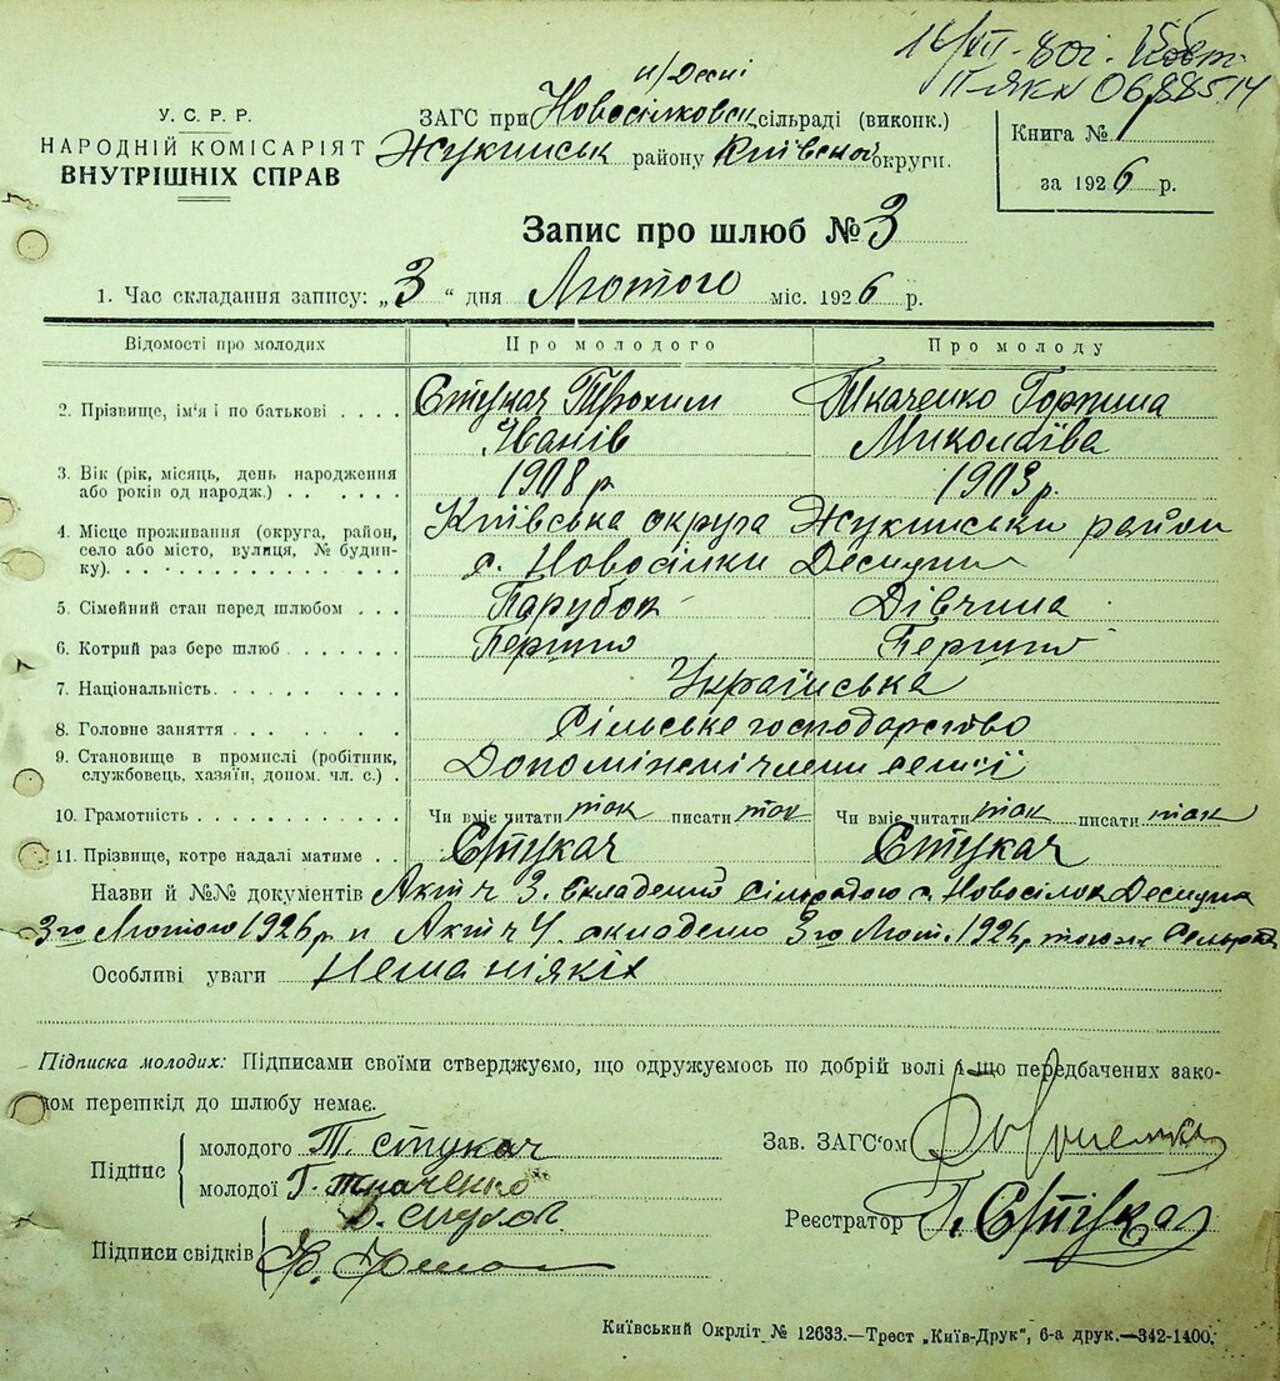 16/VII - 80і.
II-ЯКN 0688514
н/Десні
У. С. Р. Р.
НАРОДНІЙ КОМІСАРІЯТ
ВНУТРІШНІХ СПРАВ
ЗАГС при Новосілковск. сільраді (виконк.)
Жукинськ району Київської округи.
Книга № 1
за 1926 р.
Запис про шлюб № 3
1. Час складання запису: „3“ дня Лютого міс. 1926 р.
Відомості про молодих Про молодого Про молоду
2. Прізвище, ім'я і по батькові .... Стукач Трохим Ткаченко Горпина
Іванів Миколаїва
3. Вік (рік, місяць, день народження
або років од народж.) . . . . . . 1908 р 1903 р.
4. Місце проживання (округа, район, Київська округа Жукинськи район
село або місто, вулиця, № будин-
ку). с. Новосілки Десидим
5. Сімейний стан перед шлюбом . . . Парубок Дівчина
6. Котрий раз бере шлюб . . . . . . Перший Перший
7. Національність. . . . . . . . . Українська
8. Головне заняття . . . . . . . Сільське господарство
9. Становище в промислі (робітник,
службовець, хазяїн, допом. чл. с.) . члени семії
10. Грамотність . . . . . . . . . . . Чи вміє читати так писати так Чи вміє читати так писати так
11. Прізвище, котре надалі матиме . . Стукач Стукач
Назви й №№ документів Акт ч 3. Складений Сільрадою с. Новосілок
3го Лютого 1926 р и Акт ч 4. складено 3го Лют. 1926 р
Особливі уваги Нема ніяких
Підписка молодих: Підписами своїми стверджуємо, що одружуємось по добрій волі і що передбачених зако-
ном перешкід до шлюбу немає.
Підпис молодого Т. Стукач
молодої Г. Ткаченко
Зав. ЗАГС'ом
Реєстратор Стукач
Підписи свідків
Київський Окрліт № 12633.—Трест „Київ-Друк“, 6-а друк.—342-1400.